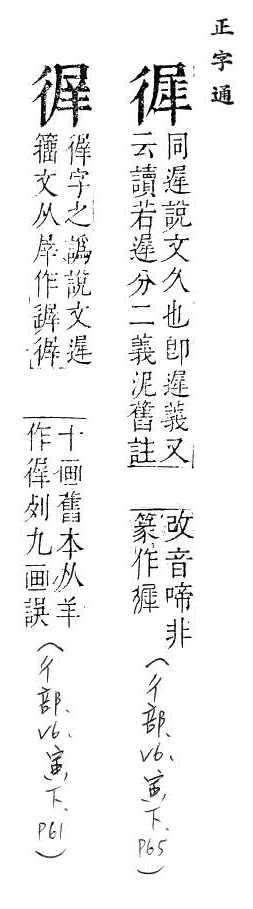 正字通
徲
同遲說文久也卽遲義又
云讀若遲分二義泥舊註
改音啼非
篆作徲
(彳部、V6、寅下、P65)
徲字之譌說文遲
籀文从屖作
十画舊本从羊
作列九画誤
(彳部、V6、寅下、P61)